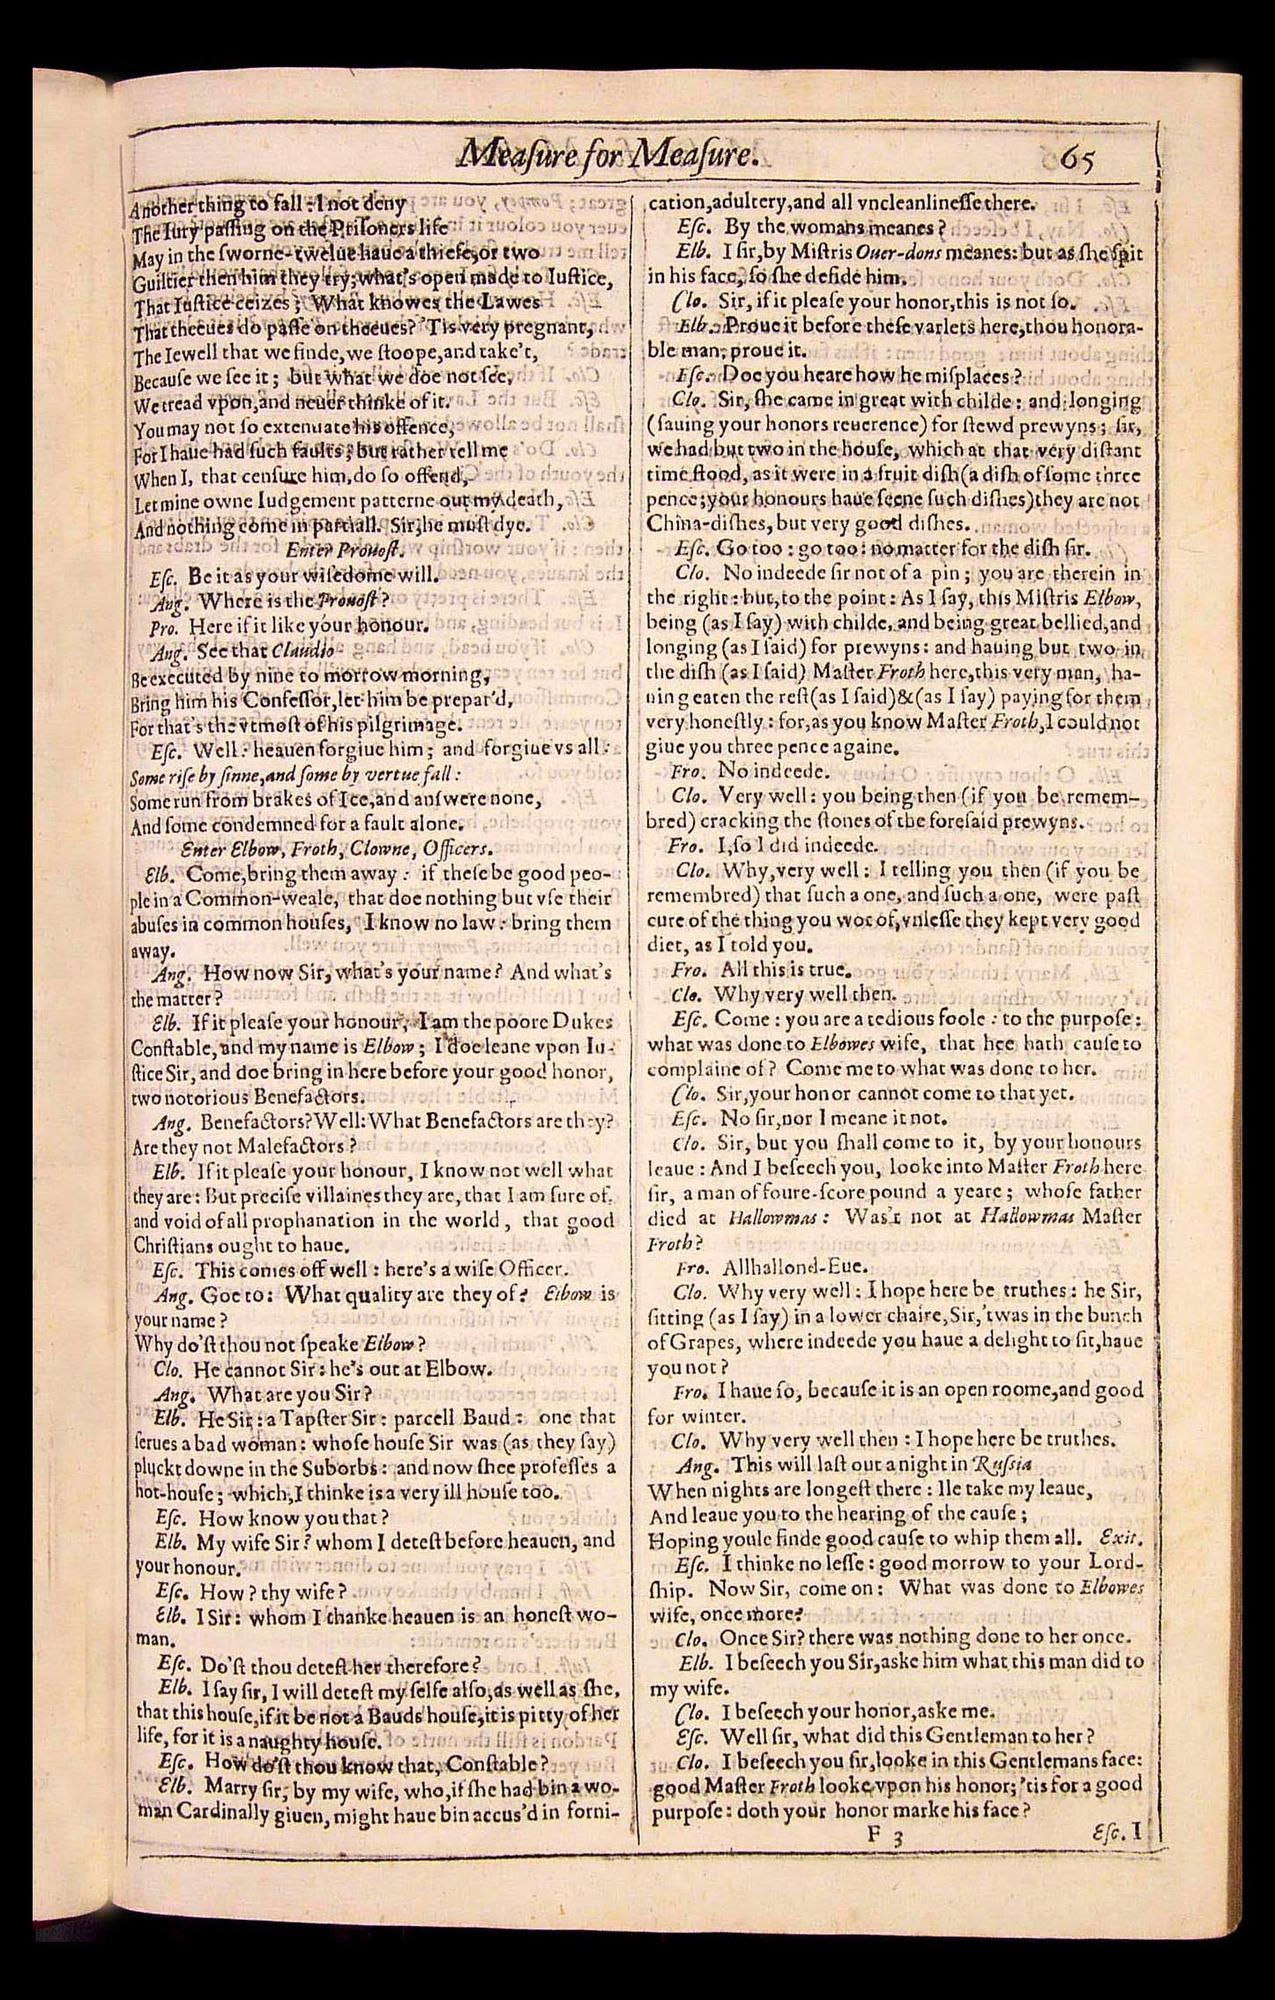 Meaſure for Meaſure. 65
Another thing to fall: I not deny
The Iury paſſing on the Priſoners life
May in the ſworne-twelue haue a thiefe, or two
Guiltier then him they try; what's open made to Iuſtice,
That Iuſtice ceizes; What knowes the Lawes
That theeues do paſſe on theeues? 'Tis very pregnant,
The Iewell that we finde, we ſtoope, and take't,
Becauſe we ſee it; but what we doe not ſee,
We tread vpon, and neuer thinke of it.
You may not ſo extenuate his offence,
For I haue had ſuch faults; but rather tell me
When I, that cenſure him, do ſo offend,
Let mine owne Iudgement patterne out my death,
And nothing come in partiall. Sir, he muſt dye.
Enter Prouoſt.
Eſc. Be it as your wiſedome will.
Ang. Where is the Prouoſt?
Pro. Here if it like your honour.
Ang. See that Claudio
Be executed by nine to morrow morning,
Bring him his Confeſſor, let him be prepar'd,
For that's the vtmoſt of his pilgrimage.
Eſc. Well: heauen forgiue him; and forgiue vs all:
Some riſe by ſinne, and ſome by vertue fall:
Some run from brakes of Ice, and anſwere none,
And ſome condemned for a fault alone.
Enter Elbow, Froth, Clowne, Officers.
Elb. Come, bring them away: if theſe be good peo-
ple in a Common-weale, that doe nothing but vſe their
abuſes in common houſes, I know no law: bring them
away.
Ang. How now Sir, what's your name? And what's
the matter?
Elb. If it pleaſe your honour, I am the poore Dukes
Conſtable, and my name is Elbow; I doe leane vpon Iu-
ſtice Sir, and doe bring in here before your good honor,
two notorious Benefactors.
Ang. Benefactors? Well: What Benefactors are they?
Are they not Malefactors?
Elb. If it pleaſe your honour, I know not well what
they are: But preciſe villaines they are, that I am ſure of,
and void of all prophanation in the world, that good
Chriſtians ought to haue.
Eſc. This comes off well: here's a wiſe Officer.
Ang. Goe to: What quality are they of? Elbow is
your name?
Why do'ſt thou not ſpeake Elbow?
Clo. He cannot Sir: he's out at Elbow.
Ang. What are you Sir?
Elb. He Sir: a Tapſter Sir: parcell Baud: one that
ſerues a bad woman: whoſe houſe Sir was (as they ſay)
pluckt downe in the Suborbs: and now ſhee profeſſes a
hot-houſe; which, I thinke is a very ill houſe too.
Eſc. How know you that?
Elb. My wife Sir? whom I deteſt before heauen, and
your honour.
Eſc. How? thy wife?
Elb. I Sir: whom I thanke heauen is an honeſt wo-
man.
Eſc. Do'ſt thou deteſt her therefore?
Elb. I ſay ſir, I will deteſt my ſelfe alſo, as well as ſhe,
that this houſe, if it be not a Bauds houſe, it is pitty of her
life, for it is a naughty houſe.
Eſc. How do'ſt thou know that, Conſtable?
Elb. Marry ſir, by my wife, who, if ſhe had bin a wo-
man Cardinally giuen, might haue bin accus'd in forni-
cation, adultery, and all vncleanlineſſe there.
Eſc. By the womans meanes?
Elb. I ſir, by Miſtris Ouer-dons meanes: but as ſhe ſpit
in his face, ſo ſhe defide him.
Clo. Sir, if it pleaſe your honor, this is not ſo.
Elb. Proue it before theſe varlets here, thou honora-
ble man, proue it.
Eſc. Doe you heare how he miſplaces?
Clo. Sir, ſhe came in great with childe: and longing
(ſauing your honors reuerence) for ſtewd prewyns; ſir,
we had but two in the houſe, which at that very diſtant
time ſtood, as it were in a fruit diſh (a diſh of ſome three
pence; your honours haue ſeene ſuch diſhes) they are not
China-diſhes, but very good diſhes.
Eſc. Go too: go too: no matter for the diſh ſir.
Clo. No indeede ſir not of a pin; you are therein in
the right: but, to the point: As I ſay, this Miſtris Elbow,
being (as I ſay) with childe, and being great bellied, and
longing (as I ſaid) for prewyns: and hauing but two in
the diſh (as I ſaid) Maſter Froth here, this very man, ha-
uing eaten the reſt (as I ſaid) & (as I ſay) paying for them
very honeſtly: for, as you know Maſter Froth, I could not
giue you three pence againe.
Fro. No indeede.
Clo. Very well: you being then (if you be remem-
bred) cracking the ſtones of the foreſaid prewyns.
Fro. I, ſo I did indeede.
Clo. Why, very well: I telling you then (if you be
remembred) that ſuch a one, and ſuch a one, were paſt
cure of the thing you wot of, vnleſſe they kept very good
diet, as I told you.
Fro. All this is true.
Clo. Why very well then.
Eſc. Come: you are a tedious foole: to the purpoſe:
what was done to Elbowes wife, that hee hath cauſe to
complaine of? Come me to what was done to her.
Clo. Sir, your honor cannot come to that yet.
Eſc. No ſir, nor I meane it not.
Clo. Sir, but you ſhall come to it, by your honours
leaue: And I beſeech you, looke into Maſter Froth here
ſir, a man of foure-ſcore pound a yeare; whoſe father
died at Hallowmas: Was't not at Hallowmas Maſter
Froth?
Fro. Allhallond-Eue.
Clo. Why very well: I hope here be truthes: he Sir,
ſitting (as I ſay) in a lower chaire, Sir, 'twas in the bunch
of Grapes, where indeede you haue a delight to ſit, haue
you not?
Fro. I haue ſo, becauſe it is an open roome, and good
for winter.
Clo. Why very well then: I hope here be truthes.
Ang. This will laſt out a night in Ruſsia
When nights are longeſt there: Ile take my leaue,
And leaue you to the hearing of the cauſe;
Hoping youle finde good cauſe to whip them all. Exit.
Eſc. I thinke no leſſe: good morrow to your Lord-
ſhip. Now Sir, come on: What was done to Elbowes
wife, once more?
Clo. Once Sir? there was nothing done to her once.
Elb. I beſeech you Sir, aske him what this man did to
my wife.
Clo. I beſeech your honor, aske me.
Eſc. Well ſir, what did this Gentleman to her?
Clo. I beſeech you ſir, looke in this Gentlemans face:
good Maſter Froth looke vpon his honor; 'tis for a good
purpoſe: doth your honor marke his face?
F 3 Eſc. I